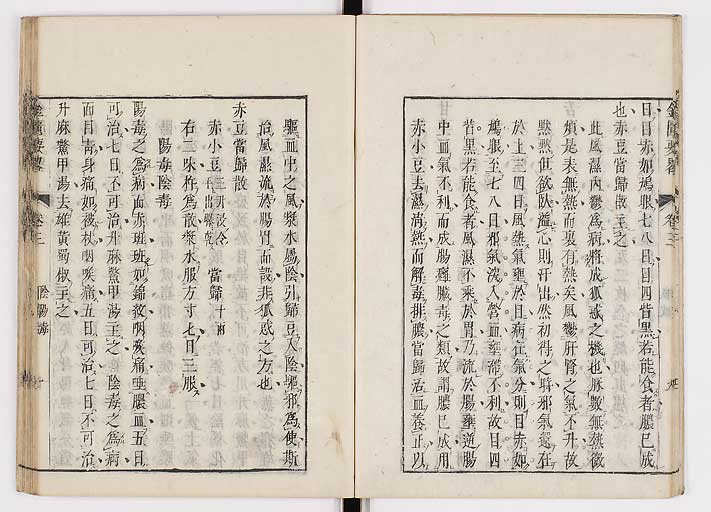 日目赤如鳩眼七八日目四眥黑若能食者膿已成
也赤豆當歸散主之
此風濕內鬱為病將成狐惑之機也脉數無熱微
煩是表無熱而裏有熱矣風鬱肝腎之氣不升故
默默但欲臥濕心則汗出然初得之時邪氣還在
於上三四日風熱氣壅於目病在氣分則目赤如
鳩眼至七八日邪氣深入營血壅滯不利故目四
眥黑若能食者風濕不乘於胃乃流於腸壅遏腸
中血氣不利而成腸癰臟毒之類故謂膿已成用
赤小豆去濕清熱而解毒排膿當歸活血養正以
驅血中之風漿水屬陰引歸豆入陰驅邪為使斯
治風濕流於腸胃而設非狐惑之方也
赤豆當歸散
赤小豆三升浸令芽出曝乾 當歸十兩
右二味杵為散漿水服方寸七日三服
陽毒陰毒
陽毒之為病面赤班班如錦紋咽喉痛唾膿血五日
可治七日不可治升麻鱉甲湯主之 陰毒之為病
面目青身痛如被杖咽喉痛五日可治七日不可治
升麻鱉甲湯去雄黃蜀椒主之
金匱要略 卷三 陰陽毒